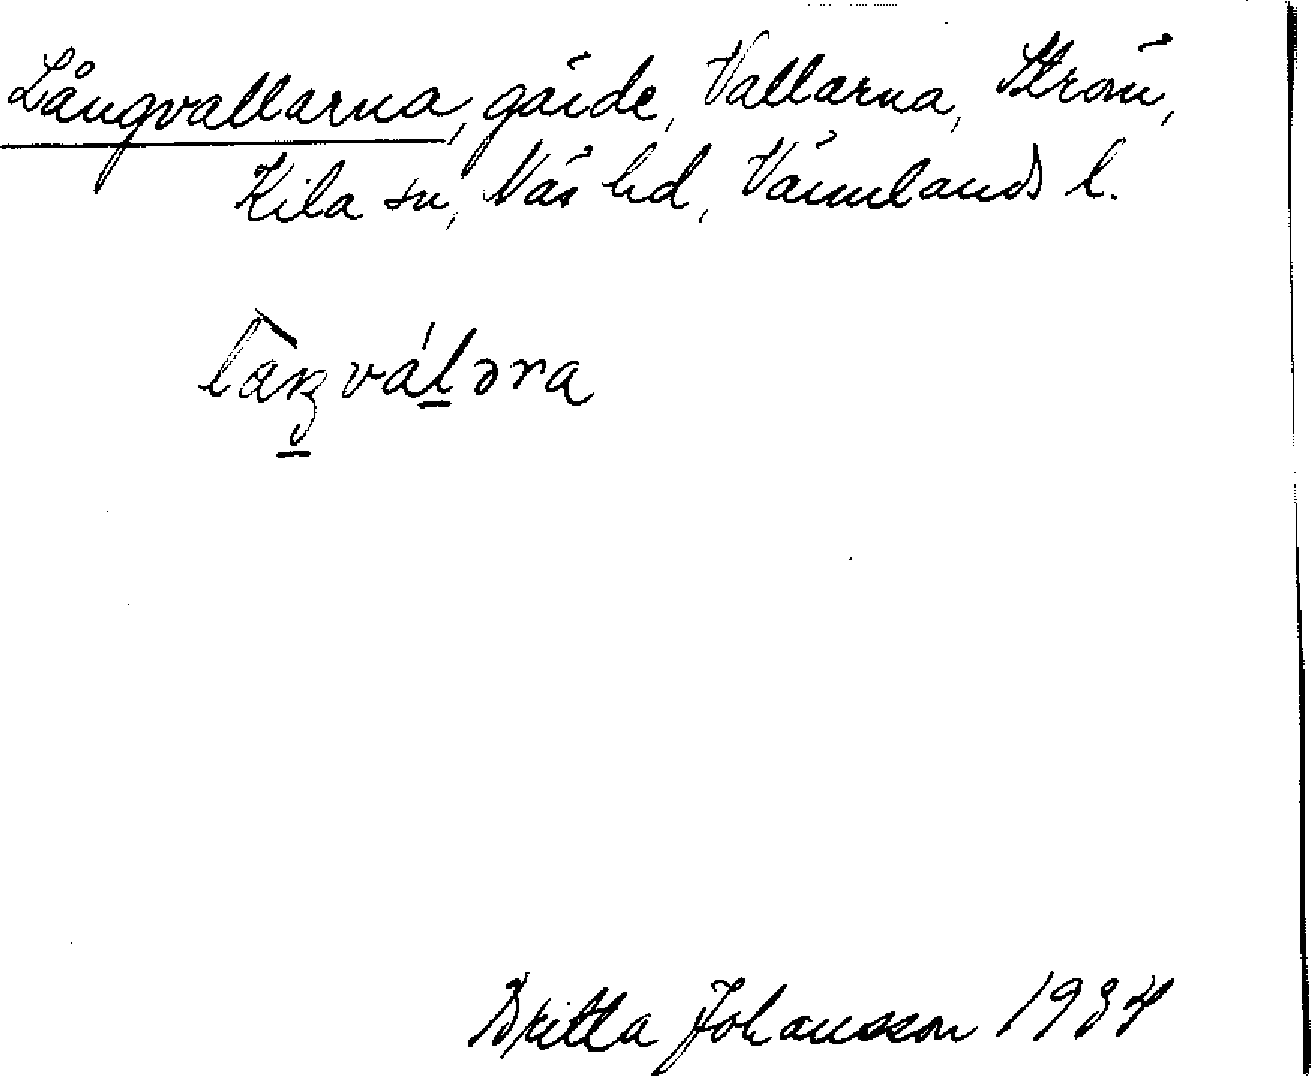 Långvallarna, gärde, Vallarna, Ström,
Kila sn, Näs hd, Värmlands l.
làŋválǝra
Britta Johansson 1934